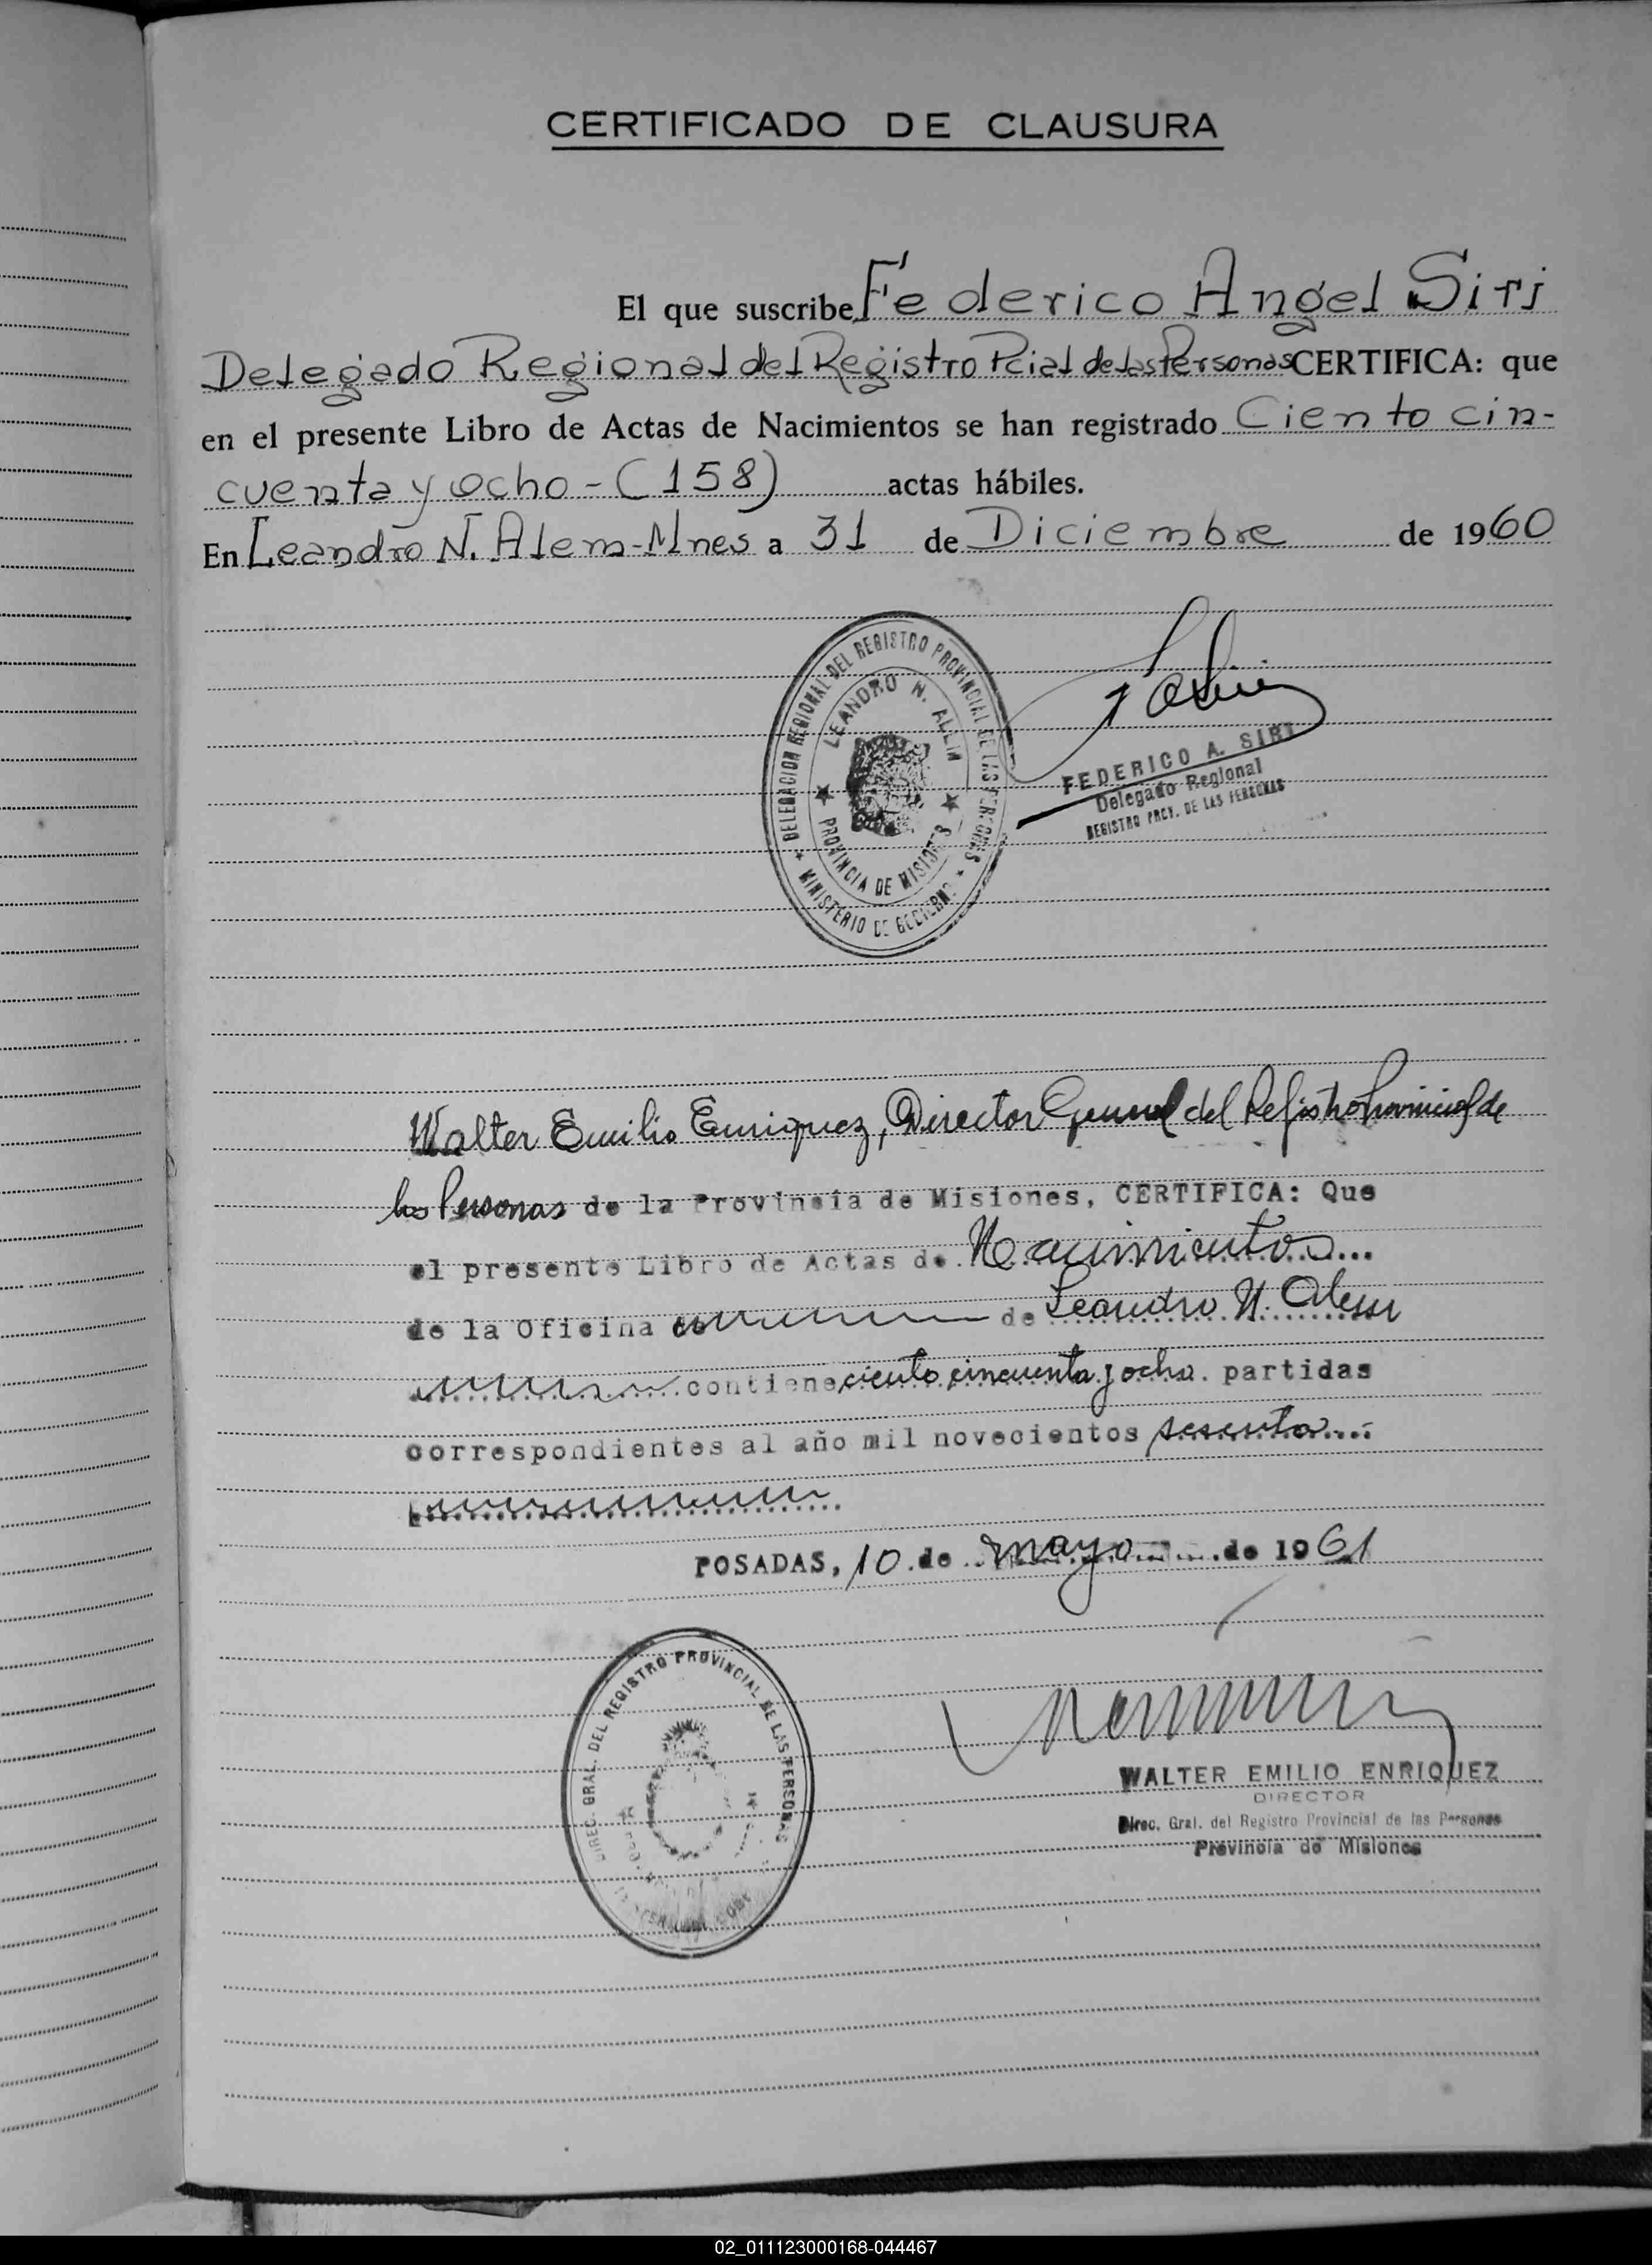 CERTIFICADO DE CLAUSURA
El que suscribe Federico Angel Siri
Delegado Regional del Registro Pcial de las Personas CERTIFICA: que
en el presente Libro de Actas de Nacimientos se han registrado Ciento cin-
cuenta y ocho - (158) actas hábiles.
En Leandro N. Alem - Mnes a 31 de Diciembre de 1960
DELEGACION REGIONAL DEL REGISTRO PROVINCIAL DE LAS PERSONAS
LEANDRO N. ALEM
PROVINCIA DE MISIONES
MINISTERIO DE GOBIERNO
FEDERICO A. SIRI
Delegado Regional
REGISTRO PRCV. DE LAS PERSONAS
Walter Emilio Enriquez, Director General del Registro Provincial de
las Personas de la Provincia de Misiones, CERTIFICA: Que
el presente Libro de Actas de Nacimientos
de la Oficina de Leandro N. Alem
contiene ciento cincuenta y ocho. partidas
correspondientes al año mil novecientos sesenta
POSADAS, 10 de mayo de 1961
DIREC. GRAL. DEL REGISTRO PROVINCIAL DE LAS PERSONAS
WALTER EMILIO ENRIQUEZ
DIRECTOR
Direc. Gral. del Registro Provincial de las Personas
Provincia de Misiones
02_011123000168-044467